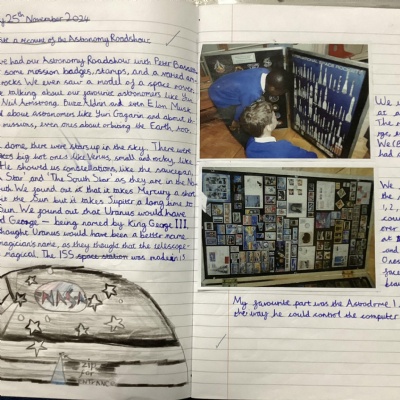 y 25th November 2024
a account of the Astronomy Roadshow
e had our Astronomy Roadshow with Peter Bassett
some mission badges, stamps, and a
rocks. We even saw a model of a space rover.
e talking about our favourite astronomers like
Neil Armstrong, Buzz Aldrin and even Elon Musk
d about astronomers like Yuri Gagarin and about the
missions, even ones about orbiting the Earth too.
dome, there were stars up in the sky. There were
big hot ones like Venus, small and rocky like
He showed us constellations like the
Star' and 'The South Star' as they are in the No
uth. We found out that it takes Mercury a short
the Sun but it takes Jupiter a long time to
Sun. We found out that Uranus would have
d George - being named by King George III.
thought Uranus would have been a better name
magician's name, as they thought that the telescope
magical. The ISS space station was made in 15
NASA
zip
for
ENTRANCE
We u
at a
The r
We (B
had a
We
the
12,
cou
ever
at
and
Ones
face
beau
My favourite part was the Astrodome I
the way he could control the computer